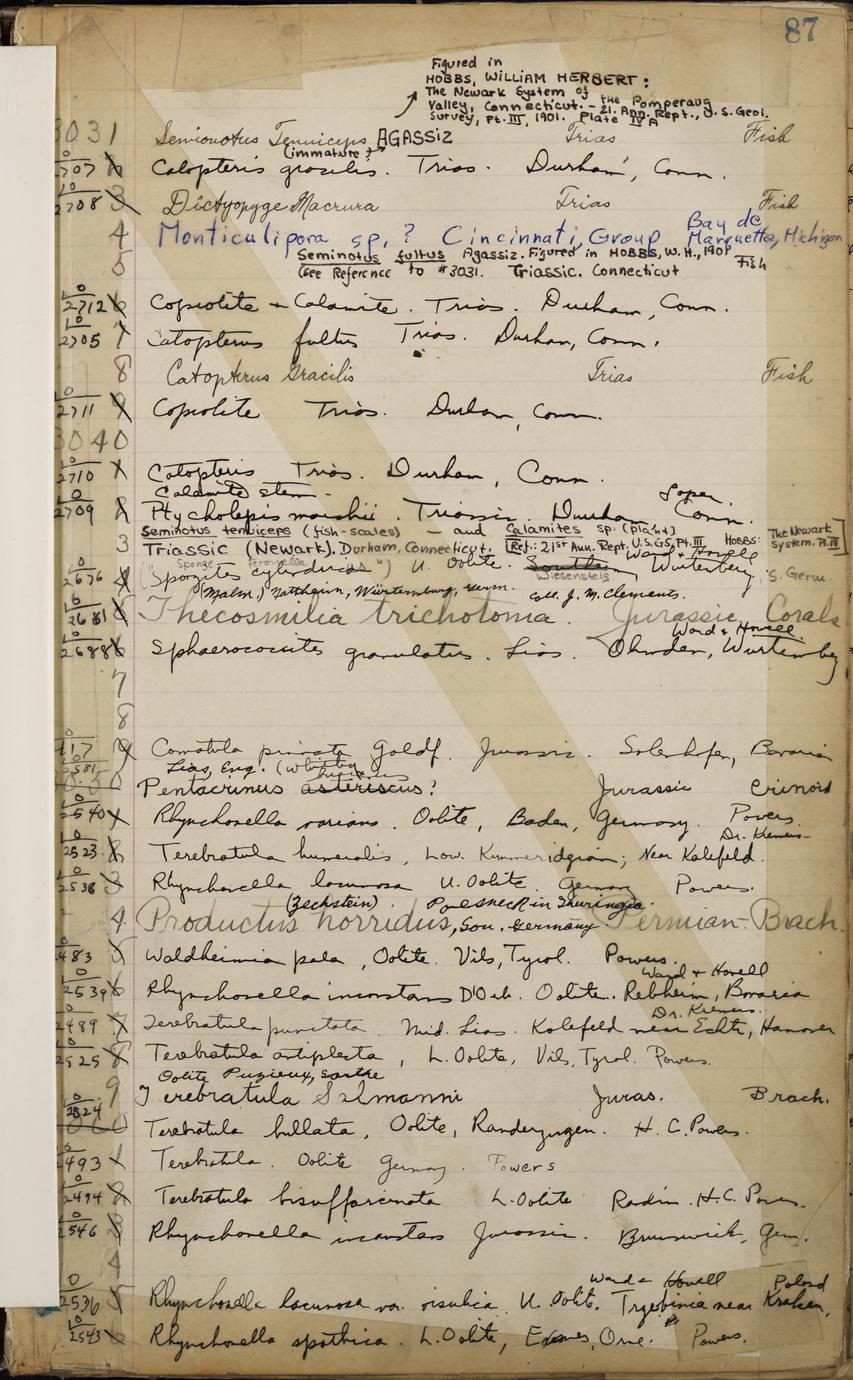 87
Figured in
HOBBS, WILLIAM HERBERT:
The Newark System of
the Pomperaug
Valley, Connecticut. - 21. Ann. Rept., U.S. Geol.
Survey, Pt. III, 1901. Plate IV A
3031 Semionotus Tenuiceps AGASSIZ Trias Fish
(immature?)
2707 Catopteris gracilis. Trias. Durham, Conn.
2708 3 Dictyopyge Macrura Trias Fish
4 Monticulipora sp. ? Cincinnati, Group Bay de
Marquette, Michigan
5 Seminotus fultus Agassiz. Figured in HOBBS, W.H., 1901 Fish
(See Reference to #3031. Triassic. Connecticut
2712 6 Copiolite + Calamite. Trias. Durham, Conn.
2705 7 Catopterus fultus Trias. Durham, Conn.
8 Catopterus Gracilis Trias Fish
2711 9 Copiolite Trias. Durham, Conn.
3040
2710 1 Catopteris Trias. Durham, Conn.
Calamite stem -
2709 2 Ptycholepis marshii. Triassic Durham Conn.
3 Seminotus tenuiceps (fish-scales) - and Calamites sp. (plant)
Triassic (Newark). Durham, Connecticut. [Ref.: 21st Ann. Rept. U.S.G.S, Pt. III Hobbs: The Newark System. Pt. IV]
Ward + Howell
2676 4 Spongites cylindricus U. Oolite. Wurtemberg, S. Germ.
Sponge
Wiesensteig
(Malm.) Nattheim, Württemburg, Germ. Coll. J. M. Clements.
2681 5 Thecosmilia trichotoma. Jurassic Corals
Ward & Howell.
2688 6 Sphaerococcites granulatus. Lias. Ohmden, Wurtemberg
7
8
417 9 Comatula pinnata Goldf. Jurassic. Solenhofen, Bavaria
Lias, Eng. (Whitby
Pentacrinus asteriscus? Jurassic Crinoid
2540 1 Rhynchonella varians. Oolite, Baden, Germany. Powers
Dr. Kremers
2523 2 Terebratula humeralis, Low. Kimmeridgian; Near Kalefeld.
2538 3 Rhynchonella lacunosa U. Oolite. Germany Powers.
(Zechstein) Poesneck in Thuringia.
4 Productus horridus, Gou. Germany Permian Brach.
483 5 Waldheimia pala, Oolite. Vils, Tyrol. Powers.
Ward + Howell
2539 6 Rhynchonella inconstans D'Orb. Oolite. Rebheim, Bavaria
Dr. Kremers.
2489 7 Terebratula punctata. Mid. Lias. Kalefeld near Echte, Hanover
2525 8 Terebratula antiplecta, L. Oolite, Vils, Tyrol. Powers.
Oolite Puzieux, Sarthe
2524 9 Terebratula Salmanni Juras. Brach.
Terebratula bullata, Oolite, H. C. Powers.
2493 1 Terebratula. Oolite Germany. Powers
2494 2 Terebratula bisuffarcinata L. Oolite H.C. Powers.
2546 3 Rhynchonella inconstans Jurassic. Brunswick, Gem.
4
Ward & Howell Poland
2536 5 Rhynchonella lacunosa var. U. Oolite. Trzebinia near Kraken,
2543 6 Rhynchonella spathica. L. Oolite, Exmes, Orne. Powers.